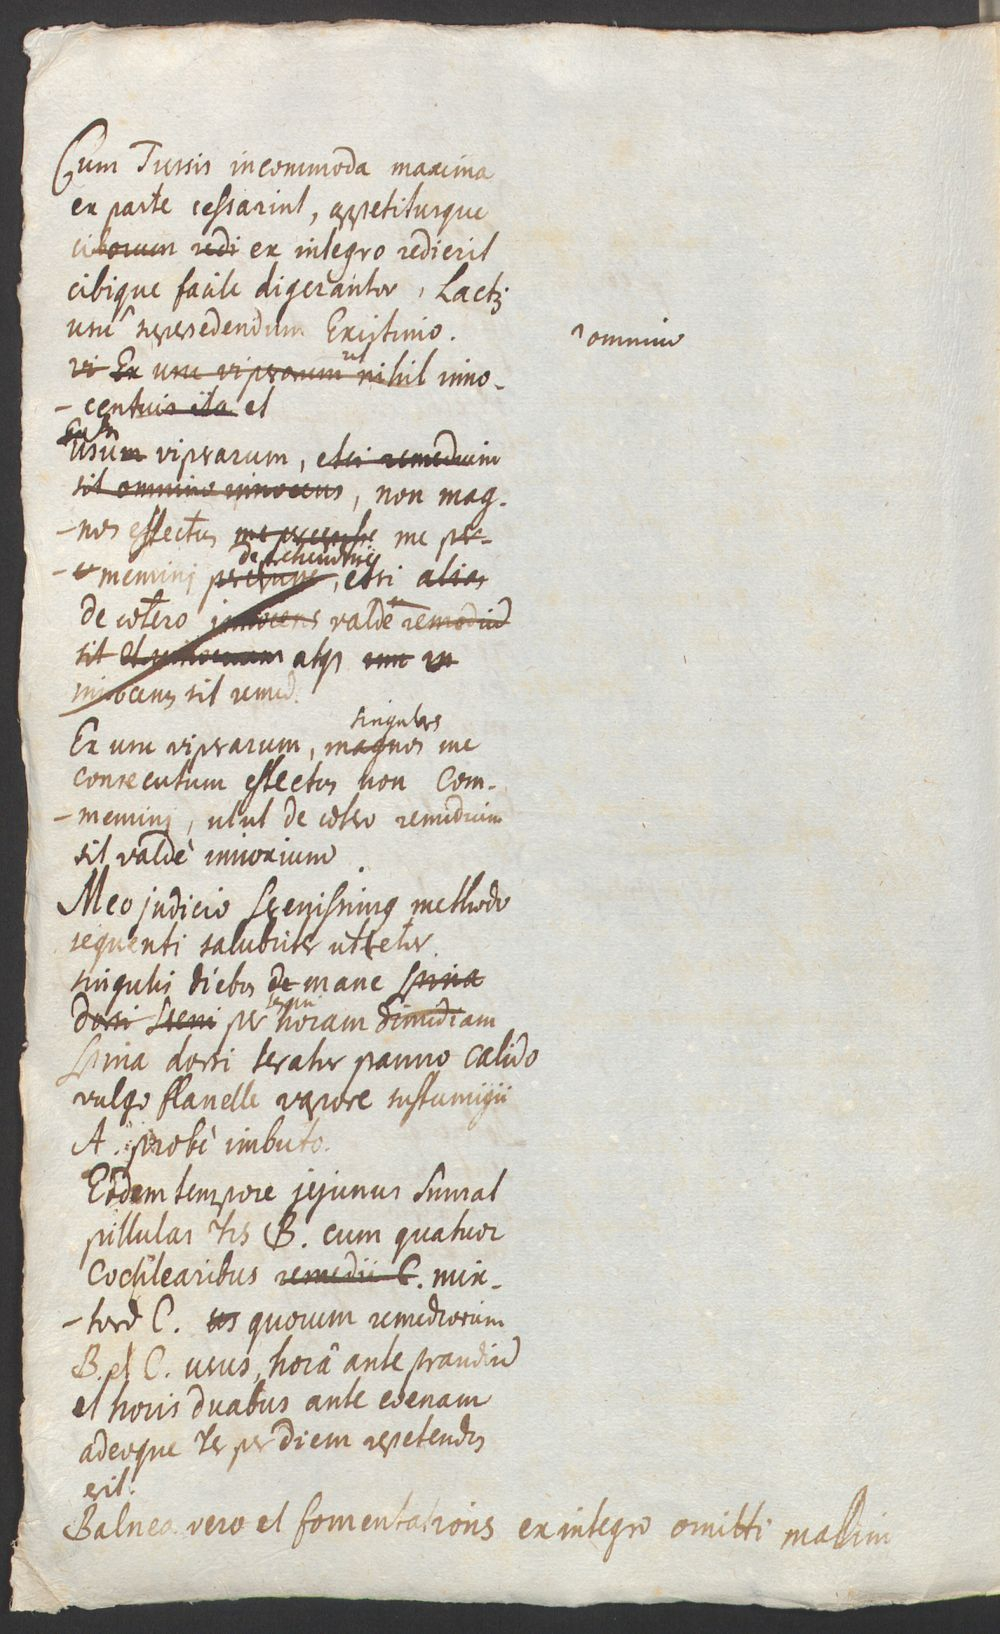 Cum Tussis incommoda maxima
ex parte cessarint, appetitusque
ciborum redi ex integro redierit
cibique facile digerantur, Lactis
usu supersedendum Existimo.
omnino
vi Ex usu viperarum vel nihil inno-
-centius ita et
usum viperarum, etsi remedium
sit omnino innocens, non mag-
-nos effectus me percepisse me per-
memini deprehendisse, etsi alias
de cœtero innocens valde remediū
sit et atq̃
innocens sit remed.
singulares
Ex usu viperarum, magnos me
consecutum effectus non Com-
-memini, ut ut de cœtero remedium
sit valdè innoxium
Meo judicio Serenissimus methodo
sequenti salubriter utetur.
singulis diebus de mane spina
dorsi Sereni per horam dimidiam
spina dorsi teratur panno calido
vulgo flanelle vapore suffumigii
A. probè imbuto.
Eodem tempore jejunus sumat
pillulas tres B. cum quatuor
Cochlearibus remedii C. mix-
-turæ C. quorum remediorum
B. et C. usus, horâ ante prandiū
et horis duabus ante coenam
adeoque ter per diem repetendus
erit.
Balnea vero et fomentationes ex integro omitti malim